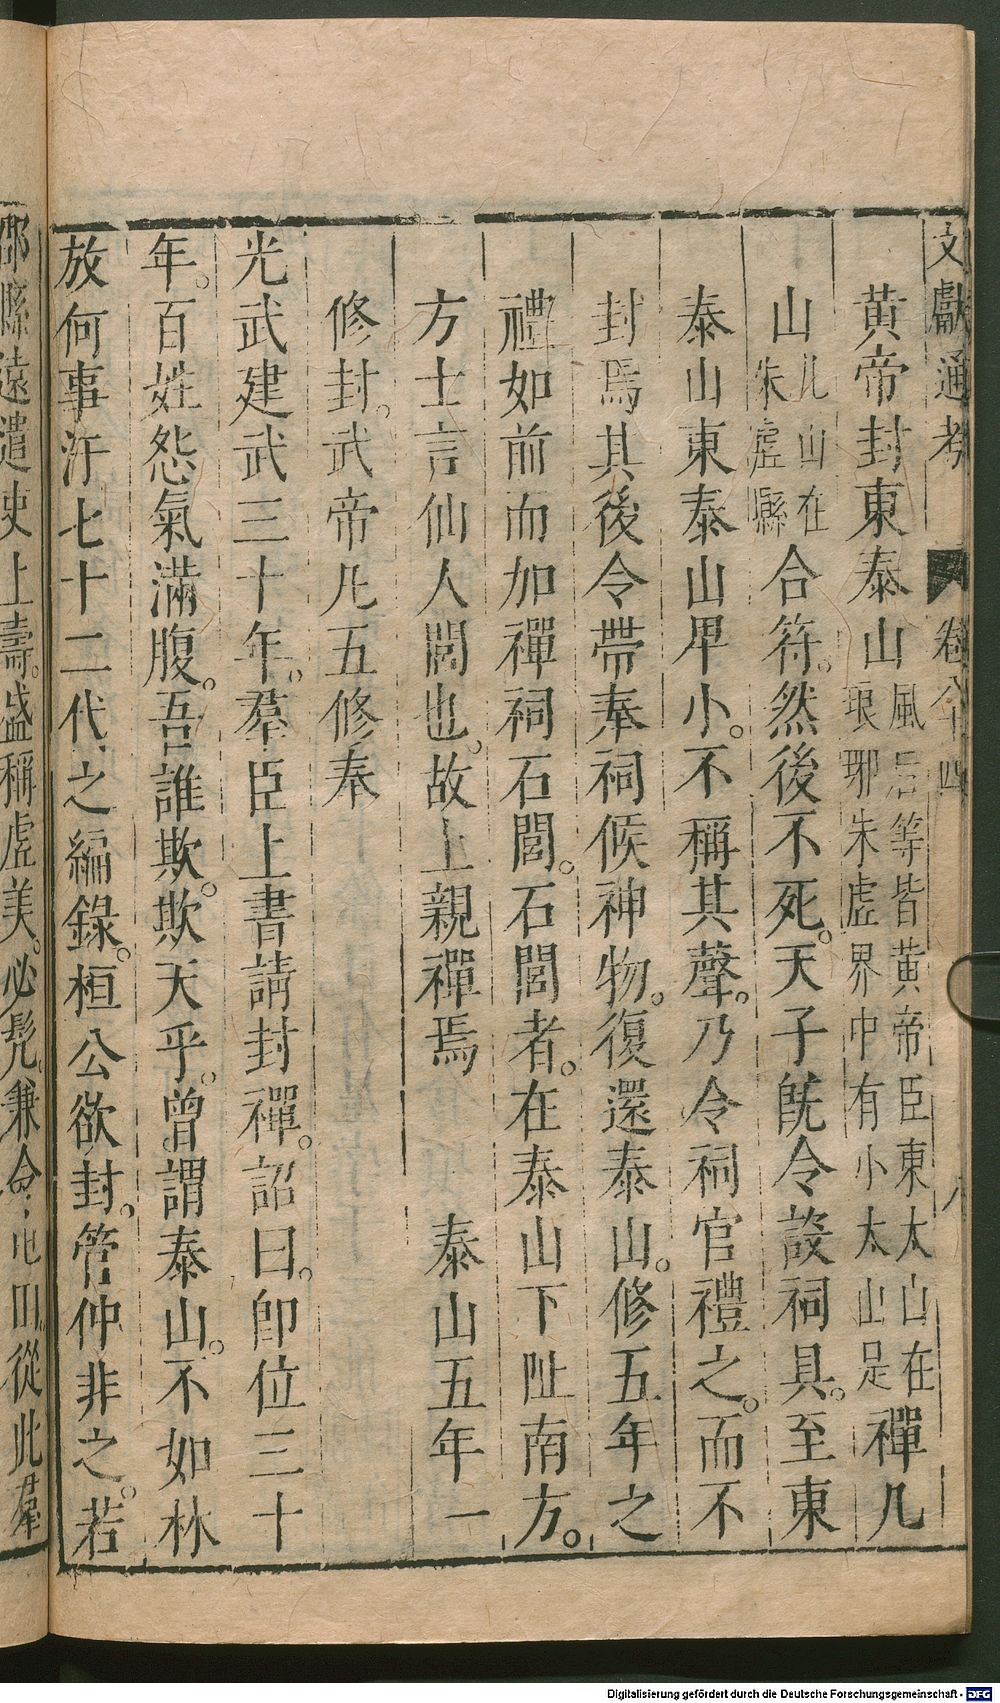 文獻通考 卷八十四 八
黃帝封東泰山風后等皆黃帝臣東太山在琅琊朱虛界中有小太山足禪凡
山凡山在朱虛縣合符。然後不死。天子旣令設祠具。至東
泰山東泰山卑小。不稱其聲。乃令祠官禮之。而不
封焉其後令帶奉祠候神物。復還泰山。修五年之
禮如前而加禪祠石閭。石閭者。在泰山下阯南方。
方士言仙人閭也。故上親禪焉 泰山五年一
修封。武帝凡五修奉
光武建武三十年。羣臣上書請封禪。詔曰。卽位三十
年。百姓怨氣滿腹。吾誰欺。欺天乎。曾謂泰山。不如林
放何事汙七十二代之編錄。桓公欲封。管仲非之。若
郡縣遠遣吏上壽。盛稱虛美。必髡。兼令屯田。從此羣
Digitalisierung gefördert durch die Deutsche Forschungsgemeinschaft - DFG